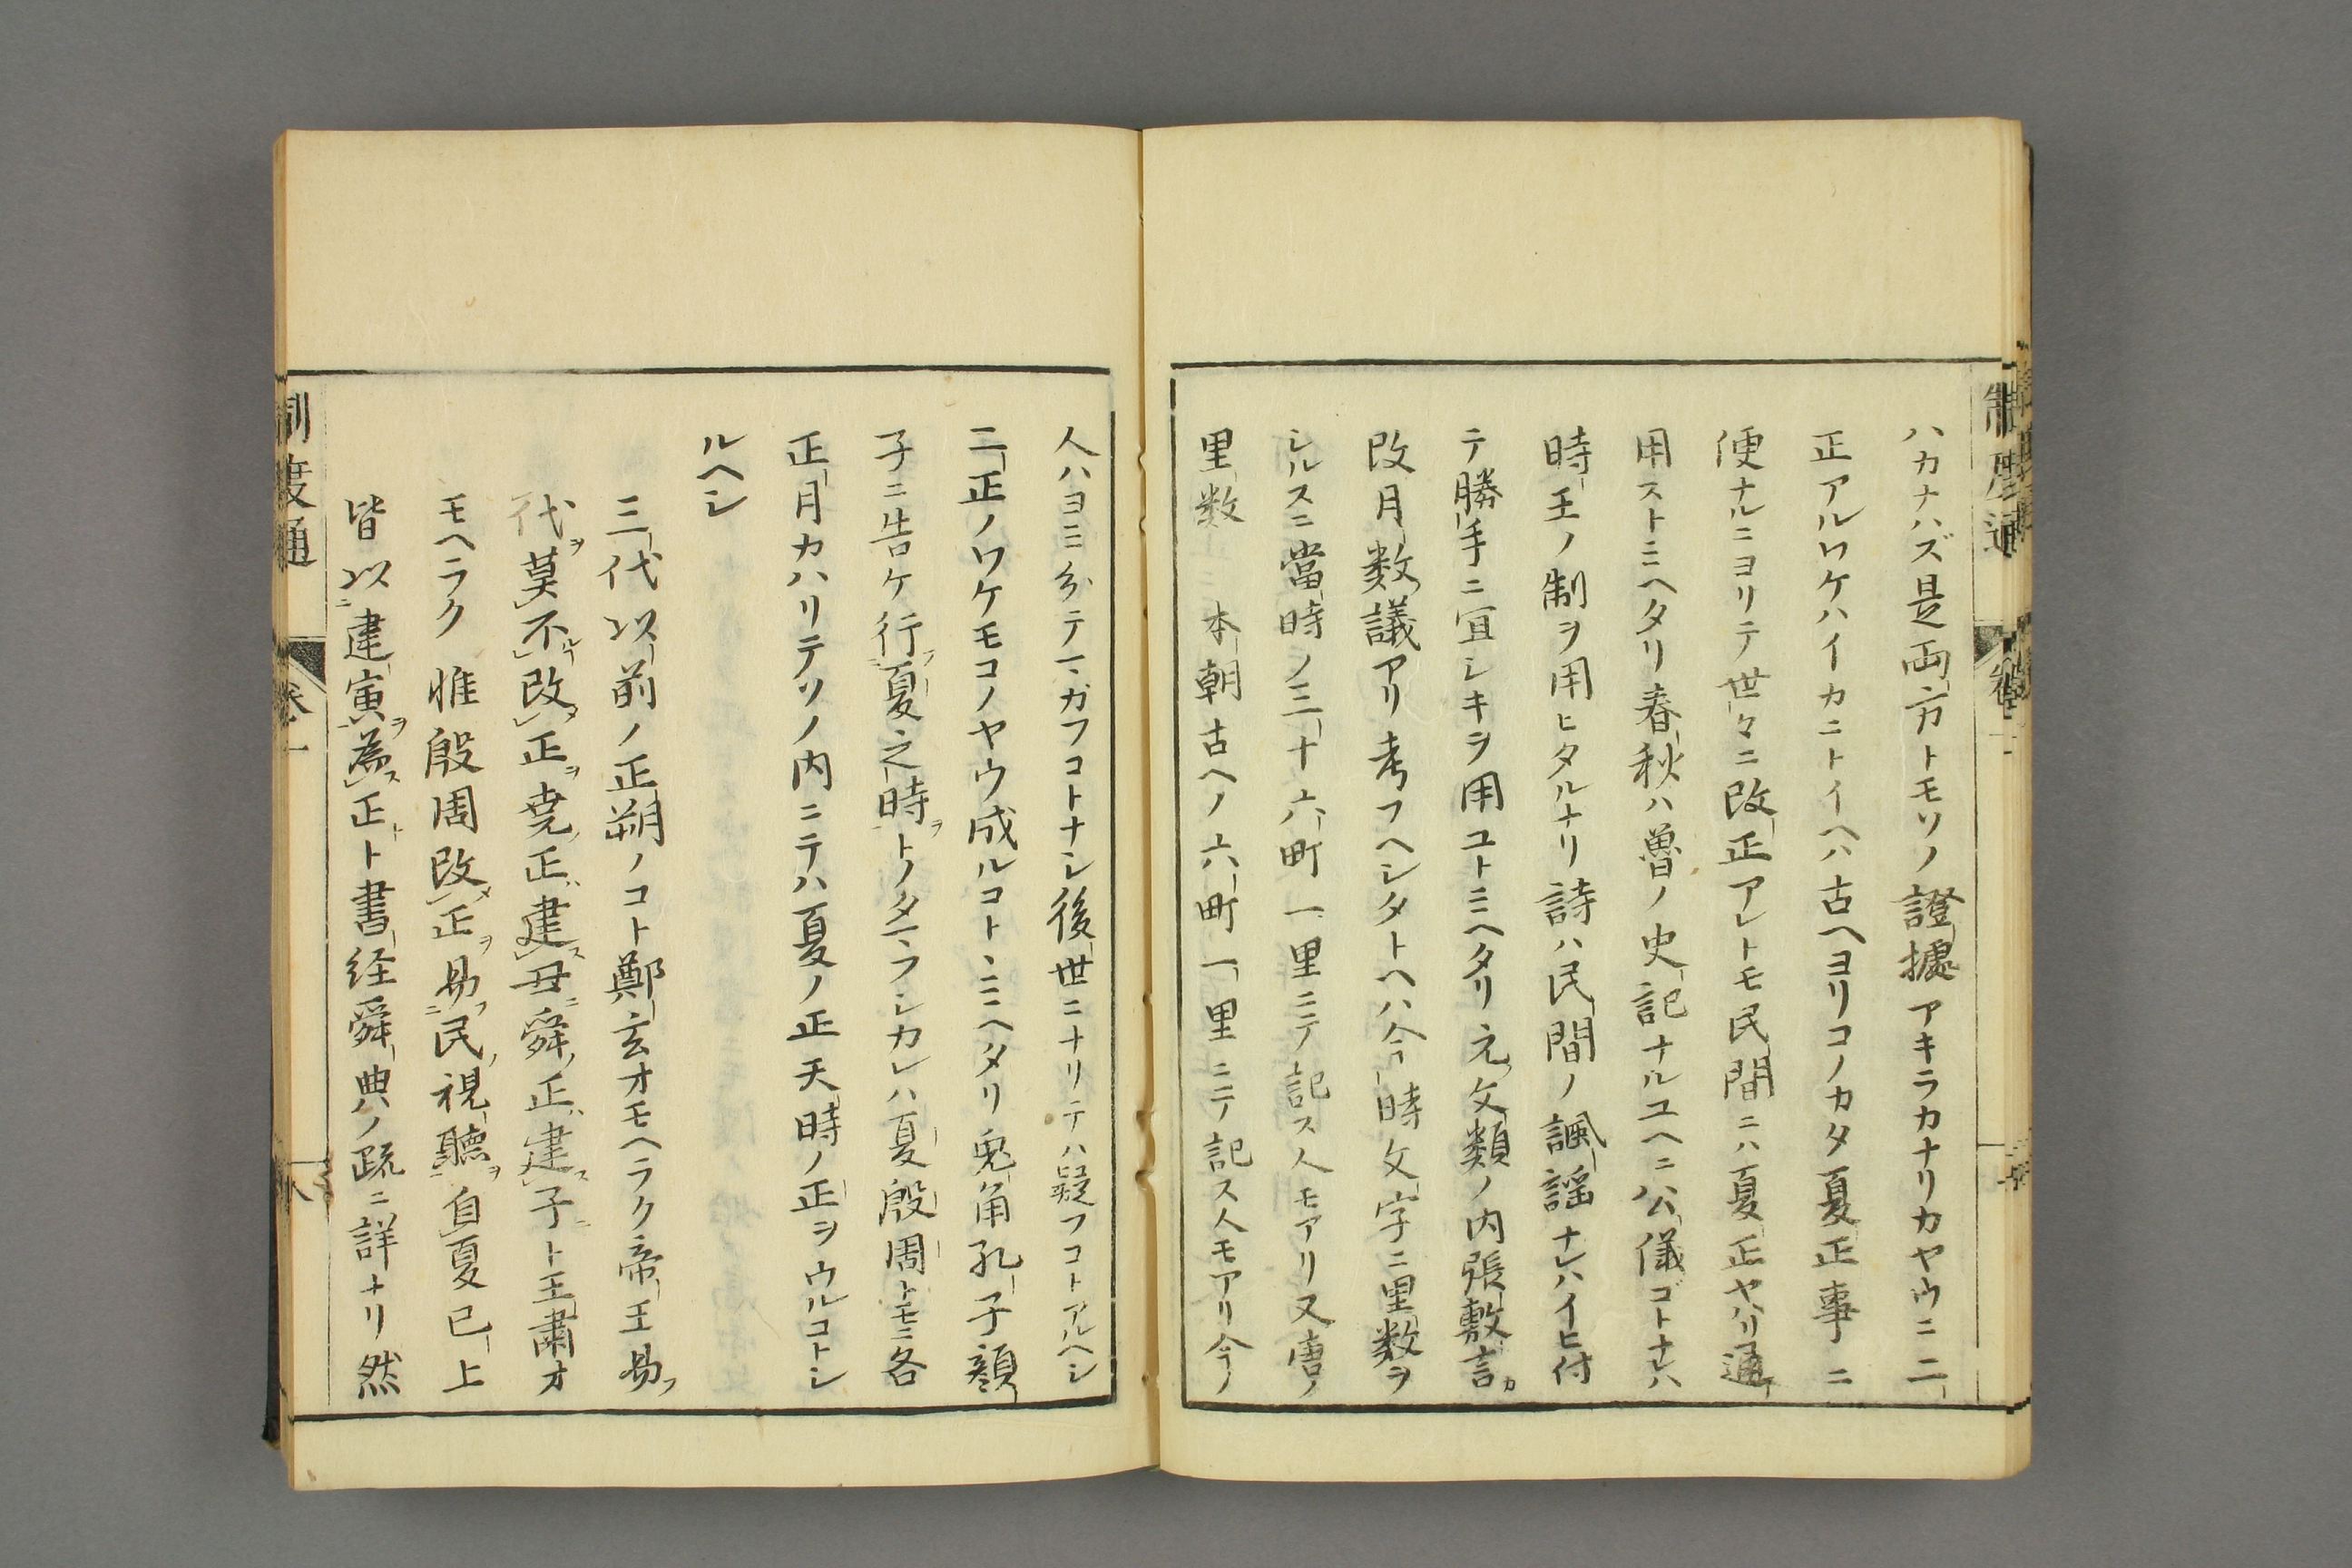 ハカナハズ是両方トモソノ證據アキラカナリカヤウニ二
正アルワケハイカニトイヘハ古ヘヨリコノカタ夏正事ニ
便ナルニヨリテ世々ニ改正アレトモ民間ニハ夏正ヤハリ通
用ストミヘタリ春秋ハ魯ノ史記ナルユヘニ公儀ゴトナレハ
時王ノ制ヲ用ヒタルナリ詩ハ民間ノ諷謡ナレハイヒ付
テ勝手ニ宜シキヲ用ユトミヘタリ元文類ノ内張敷言カ
改月数議アリ考フヘシタトヘハ今時文字ニ里数ヲ
シルスニ當時ノ三十六町一里ニテ記ス人モアリ又唐ノ
里数 本朝古ヘノ六町一里ニテ記ス人モアリ今ノ
人ハヨミ分テマガフコトナシ後世ニナリテハ疑フコトアルヘシ
二正ノワケモコノヤウ成ルコトヽミヘタリ兎角孔子顔
子ニ告ケ行夏之時トノタマフシカレハ夏殷周トモニ各
正月カハリテソノ内ニテハ夏ノ正天時ノ正ヲウルコトシ
ルヘシ
三代以前ノ正朔ノコト鄭玄オモヘラク帝王易フ
代ヲ莫不改正ヲ堯正建丑舜正建子ト王肅オ
モヘラク惟殷周改正ヲ易民視聽ヲ自夏已上
皆以建寅ヲ為正ト書経舜典ノ疏ニ詳ナリ然
制度通
巻一
八
制度通